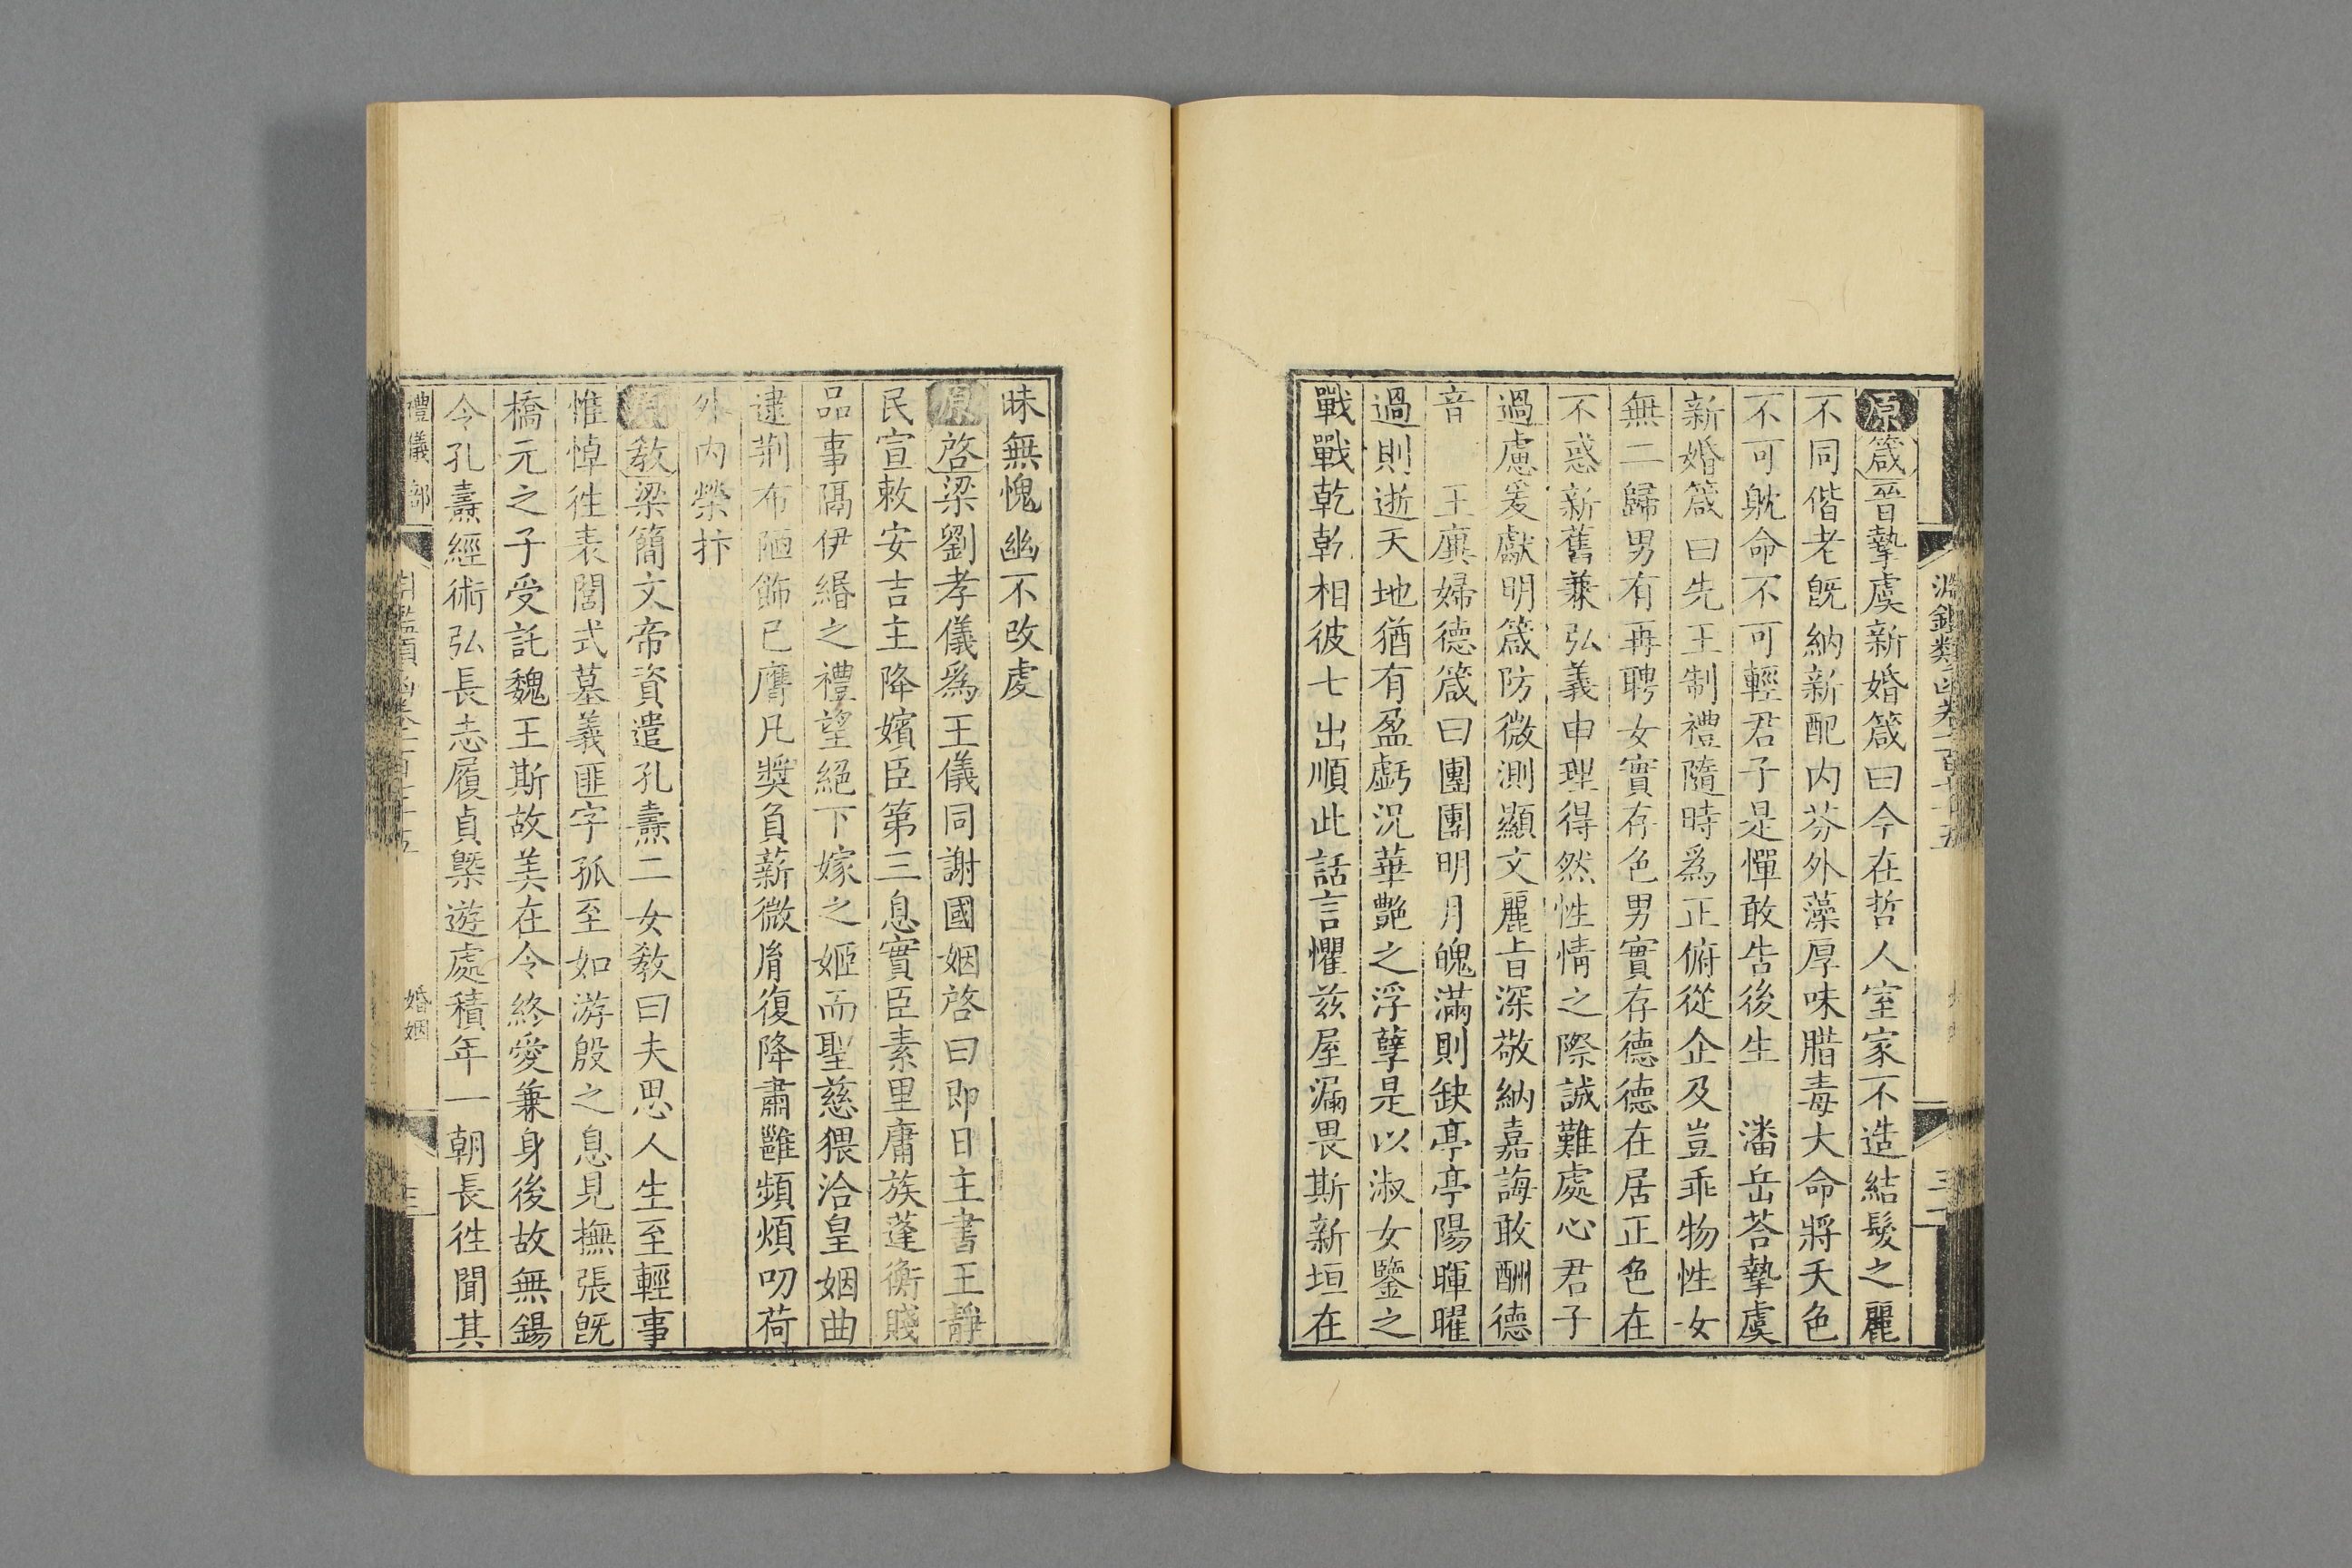 原箴晉摯虞新婚箴曰今在哲人室家不造結髮之麗
不同偕老旣納新配内芬外藻厚味腊毒大命將夭色
不可躭命不可輕君子是憚敢告後生　潘岳荅摯虞
新婚箴曰先王制禮隨時爲正俯從企及豈乖物性女
無二歸男有再聘女實存色男實存德德在居正色在
不惑新舊兼弘義申理得然性情之際誠難處心君子
過慮爰獻明箴防微測顯文麗旨深敬納嘉誨敢酬德
音　王廙婦德箴曰團團明月魄滿則缺亭亭陽暉曜
過則逝天地猶有盈虧況華艶之浮孽是以淑女鑒之
戰戰乾乾相彼七出順此話言懼兹屋漏畏斯新垣在
昧無愧幽不改虔
原啓梁劉孝儀爲王儀同謝國姻啓曰即日主書王靜
民宣敕安吉主降嬪臣第三息實臣素里庸族蓬衡賤
品事隔伊緡之禮望絕下嫁之姬而聖慈猥洽皇姻曲
逮荆布陋飾已膺凡奬負薪微胤復降肅雝頻煩叨荷
外内榮抃
原敎梁簡文帝資遣孔燾二女敎曰夫思人生至輕事
惟悼徃表閭式墓義匪字孤至如游殷之息見撫張旣
橋元之子受託魏王斯故美在令終愛兼身後故無錫
令孔燾經術弘長志履貞槩遊處積年一朝長徃聞其
禮儀部
婚姻